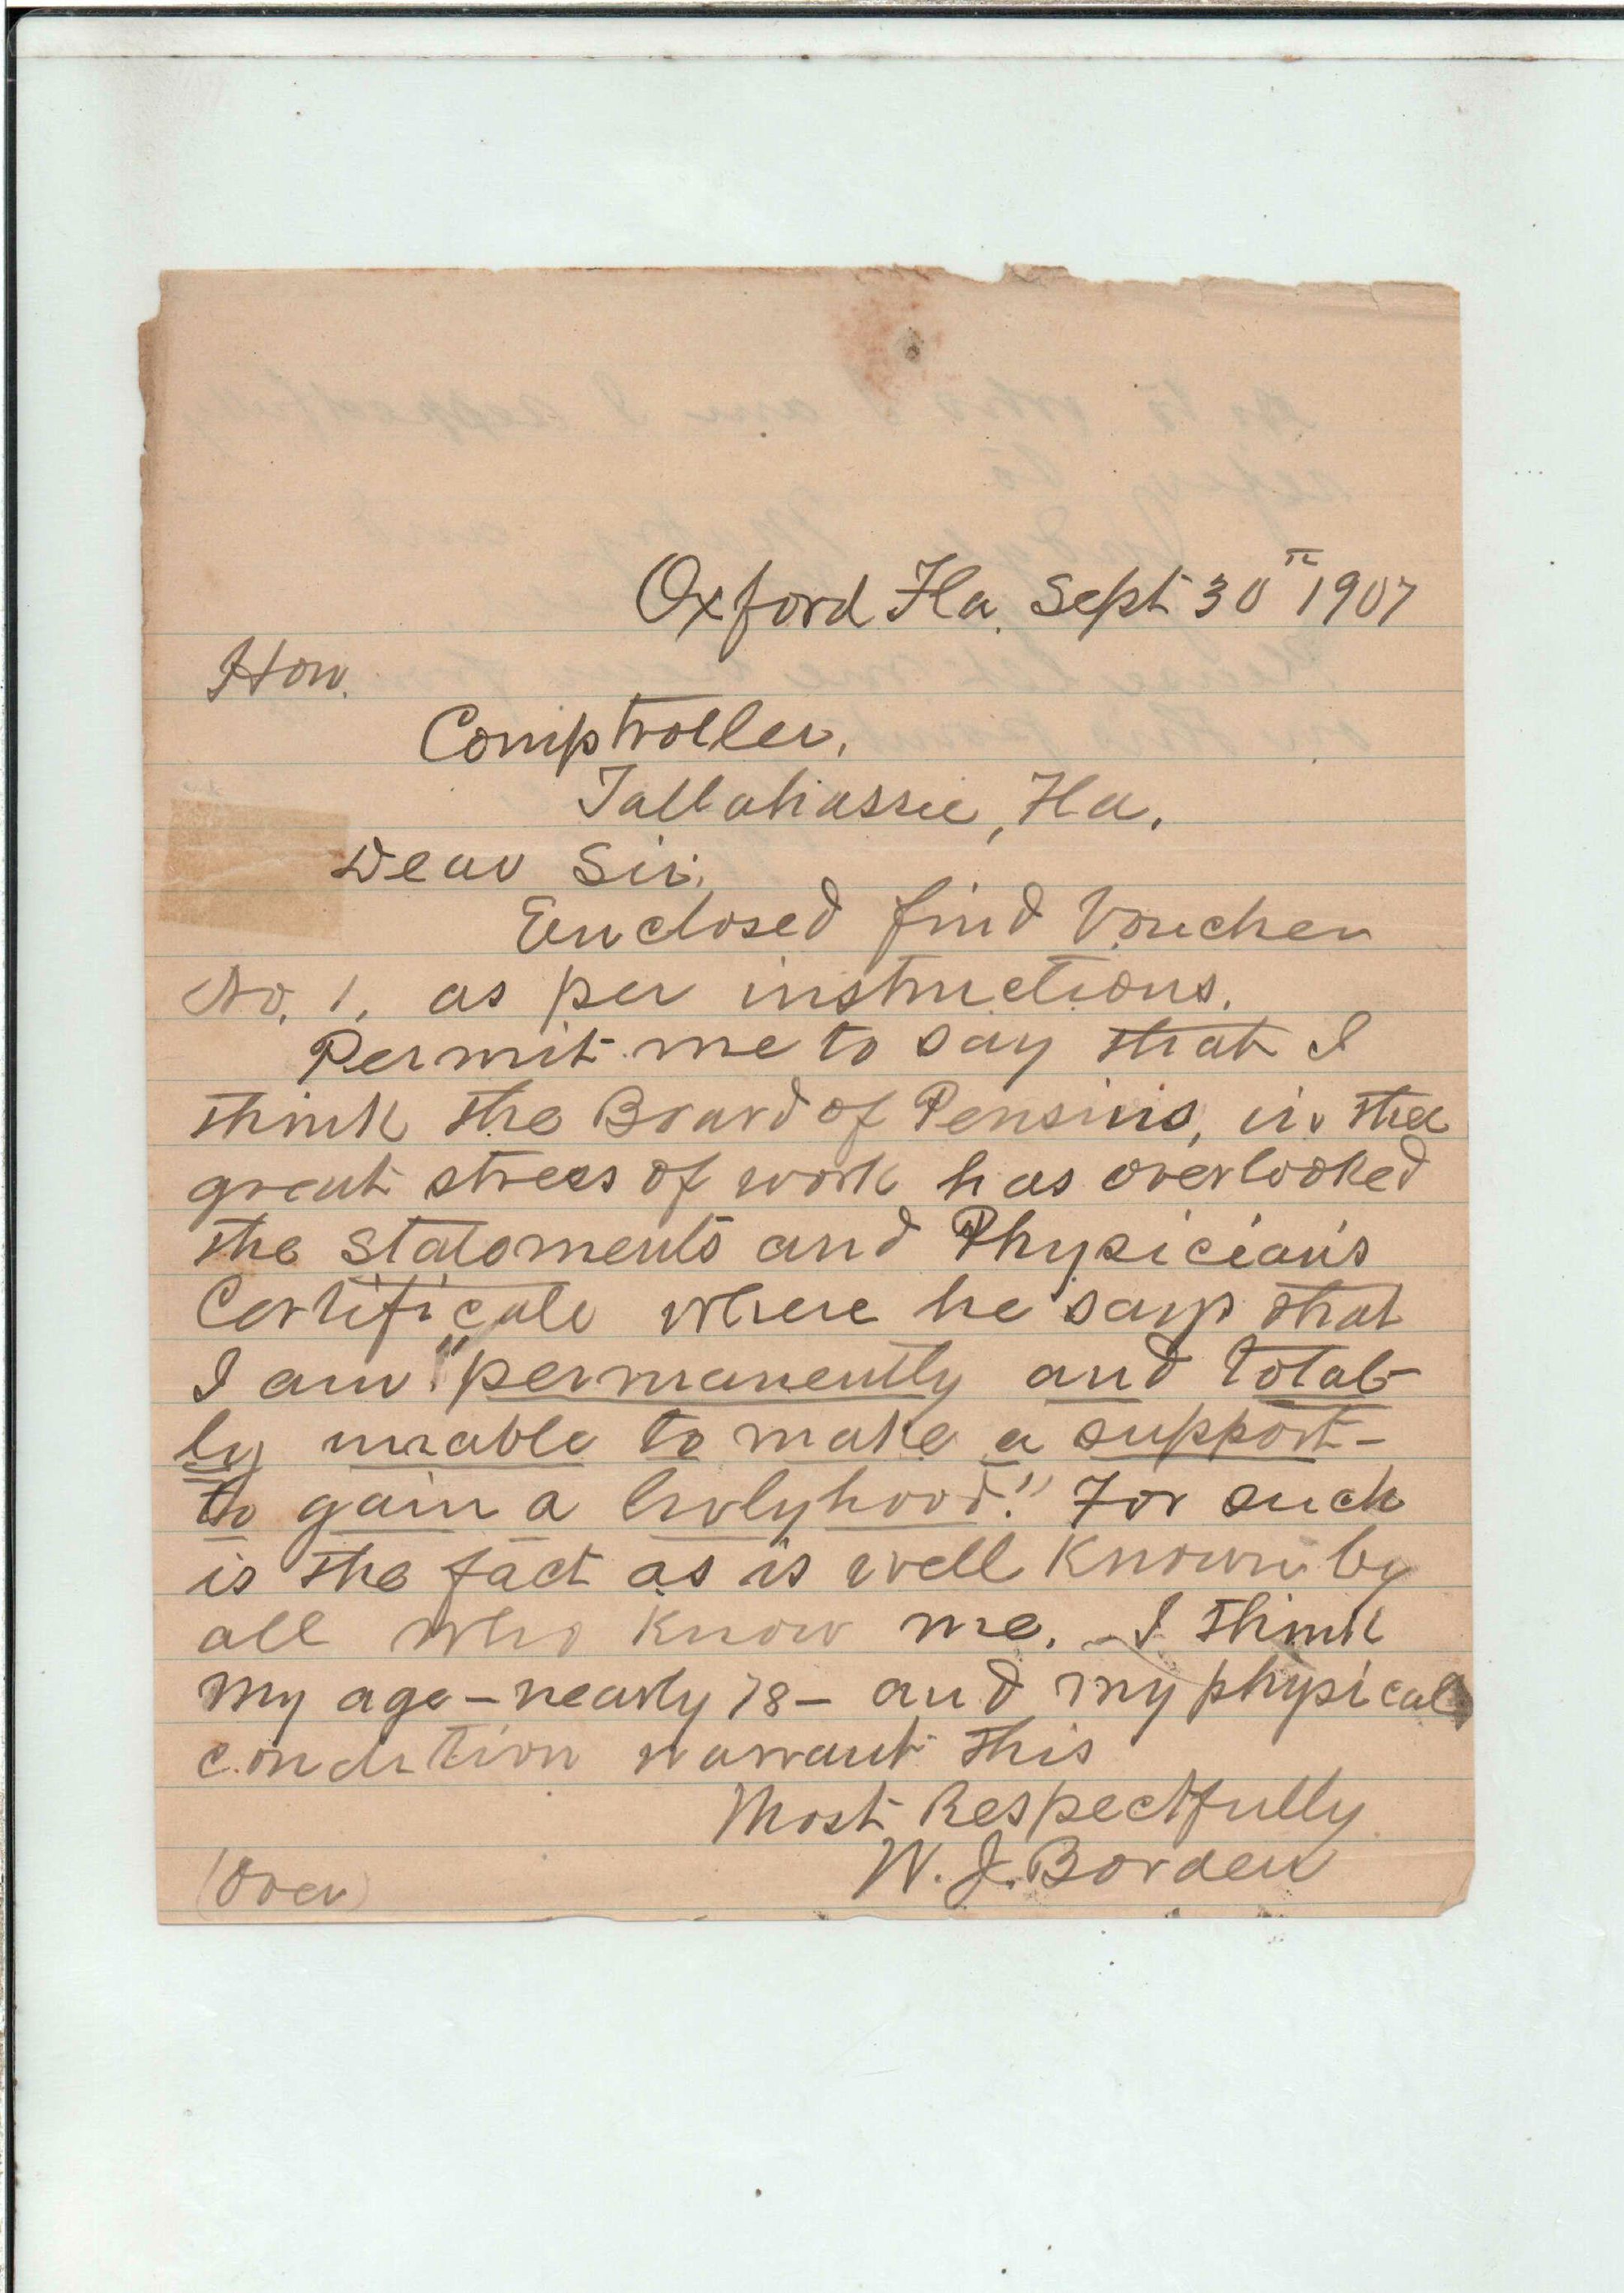 Oxford Fla. Sept 30th 1907
Hon.
Comptroller,
Tallahassee, Fla.
Dear Sir:
Enclosed find Voucher
No. 1, as per instructions.
Permit me to say that I
think the Board of Pensins, in the
great stress of work has overlooked
the statements and Physician's
Certificate where he says that
I am "permanently and total-
ly unable to make a support-
to gain a livlyhood." For such
is the fact as is well known by
all who know me. I think
my age - nearly 78 - and my physical
condition warrant this
Most Respectfully
W. J. Borden
(Over)